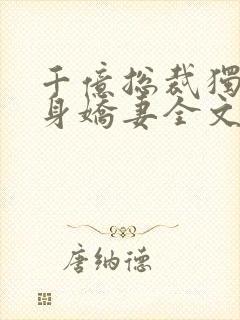 千億総裁獨
身嬌妻全文
唐納德